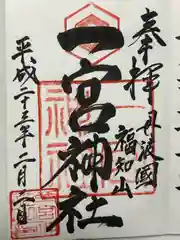 奉拝
丹波國
福知山
一宮神社
平成二十三年二月八日